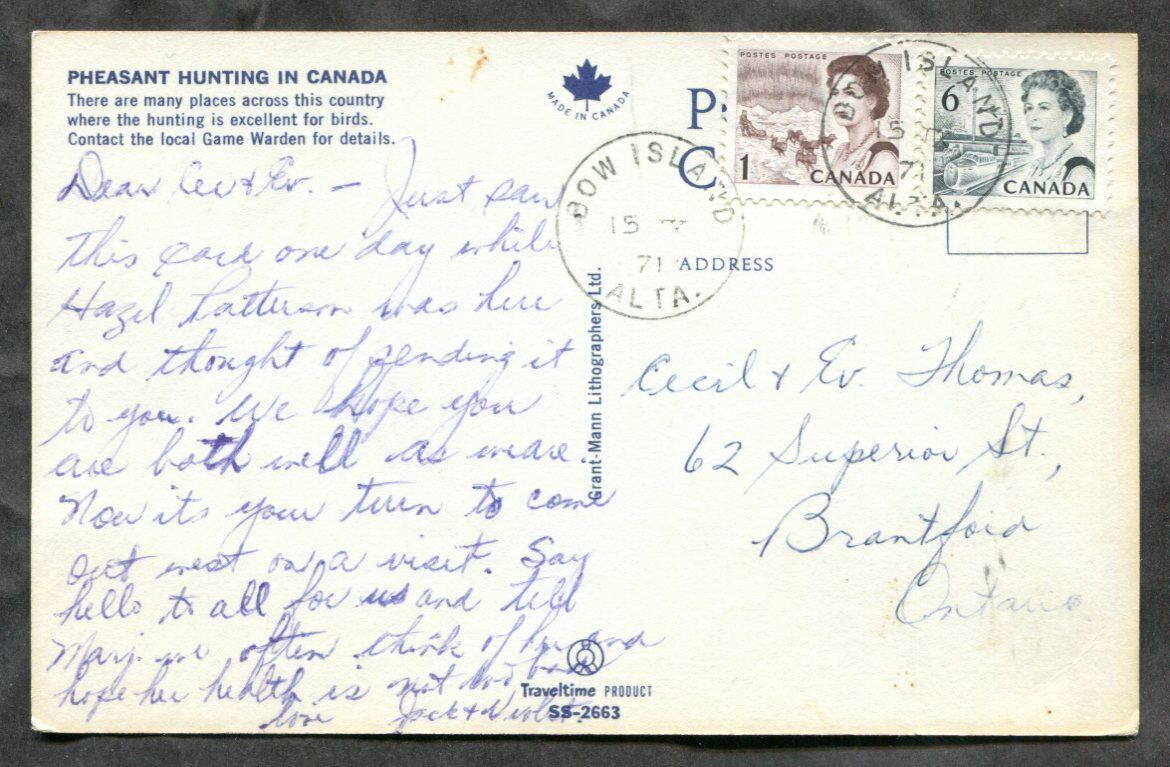 PHEASANT HUNTING IN CANADA
There are many places across this country
where the hunting is excellent for birds.
Contact the local Game Warden for details.
MADE IN CANADA
POSTES POSTAGE
1
CANADA
POSTES POSTAGE
6
CANADA
BOW ISLAND
15
71
ALTA.
BOW ISLAND
15
71
ALTA.
ADDRESS
Dear Cec & Ev. — Just saw
this card one day while
Hazel Patterson was here
and thought of sending it
to you. We hope you
are both well as weare.
Now its your turn to come
out west on a visit. Say
hello to all for us and tell
Marj. we often think of her and
hope her health is not too bad
love Jack & Violet.
Grant-Mann Lithographers Ltd.
Cecil & Ev. Thomas,
62 Superior St.,
Brantford
Ontario
Traveltime PRODUCT
SS-2663